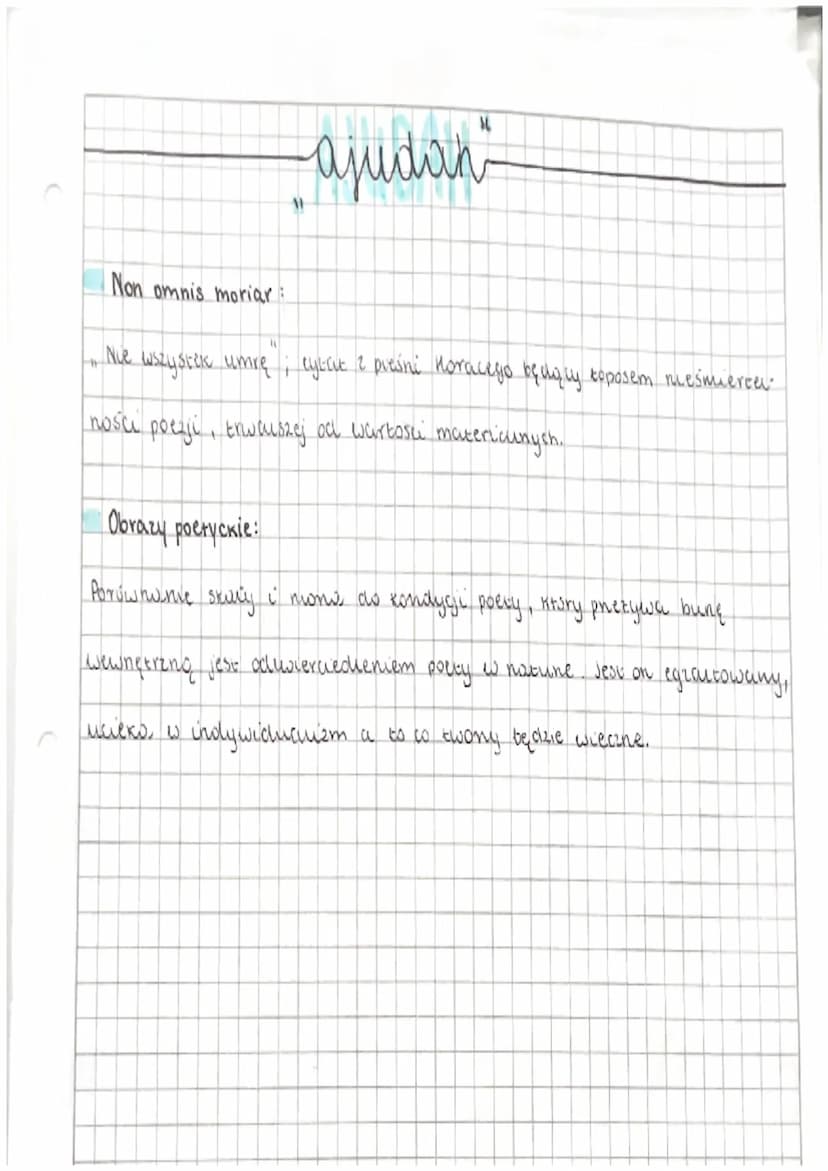 „ajudah"
AJUDAH
Non omnis moriar:
„Nie wszystek umrę"; cytat z pieśni Horacego będący toposem nieśmiertel-
ności poezji, trwalszej od wartości materialnych.
Obrazy poetyckie:
Porównanie skały i morza do kondycji poety, który przeżywa burzę
wewnętrzną jest odzwierciedleniem poety w naturze. Jest on egzaltowany,
ucieka w indywidualizm a to co tworzy będzie wieczne.